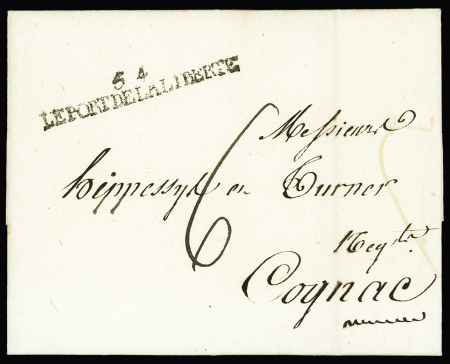 54
LE PORT DE LA LIBERTE
Messieurs
hippessyel en Turner
6
Neg.ts
Cognac